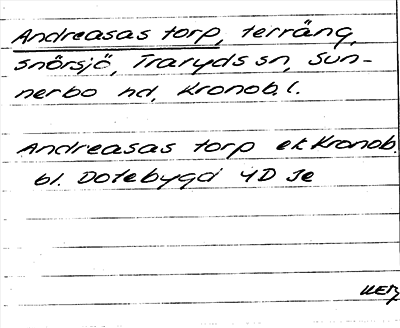 Andreasas torp, terräng,
Snörsjö, Traryds sn, Sun-
nerbo hd, Kronob. l.
Andreasas torp ek Kronob.
bl. Dotebygd 4D Je